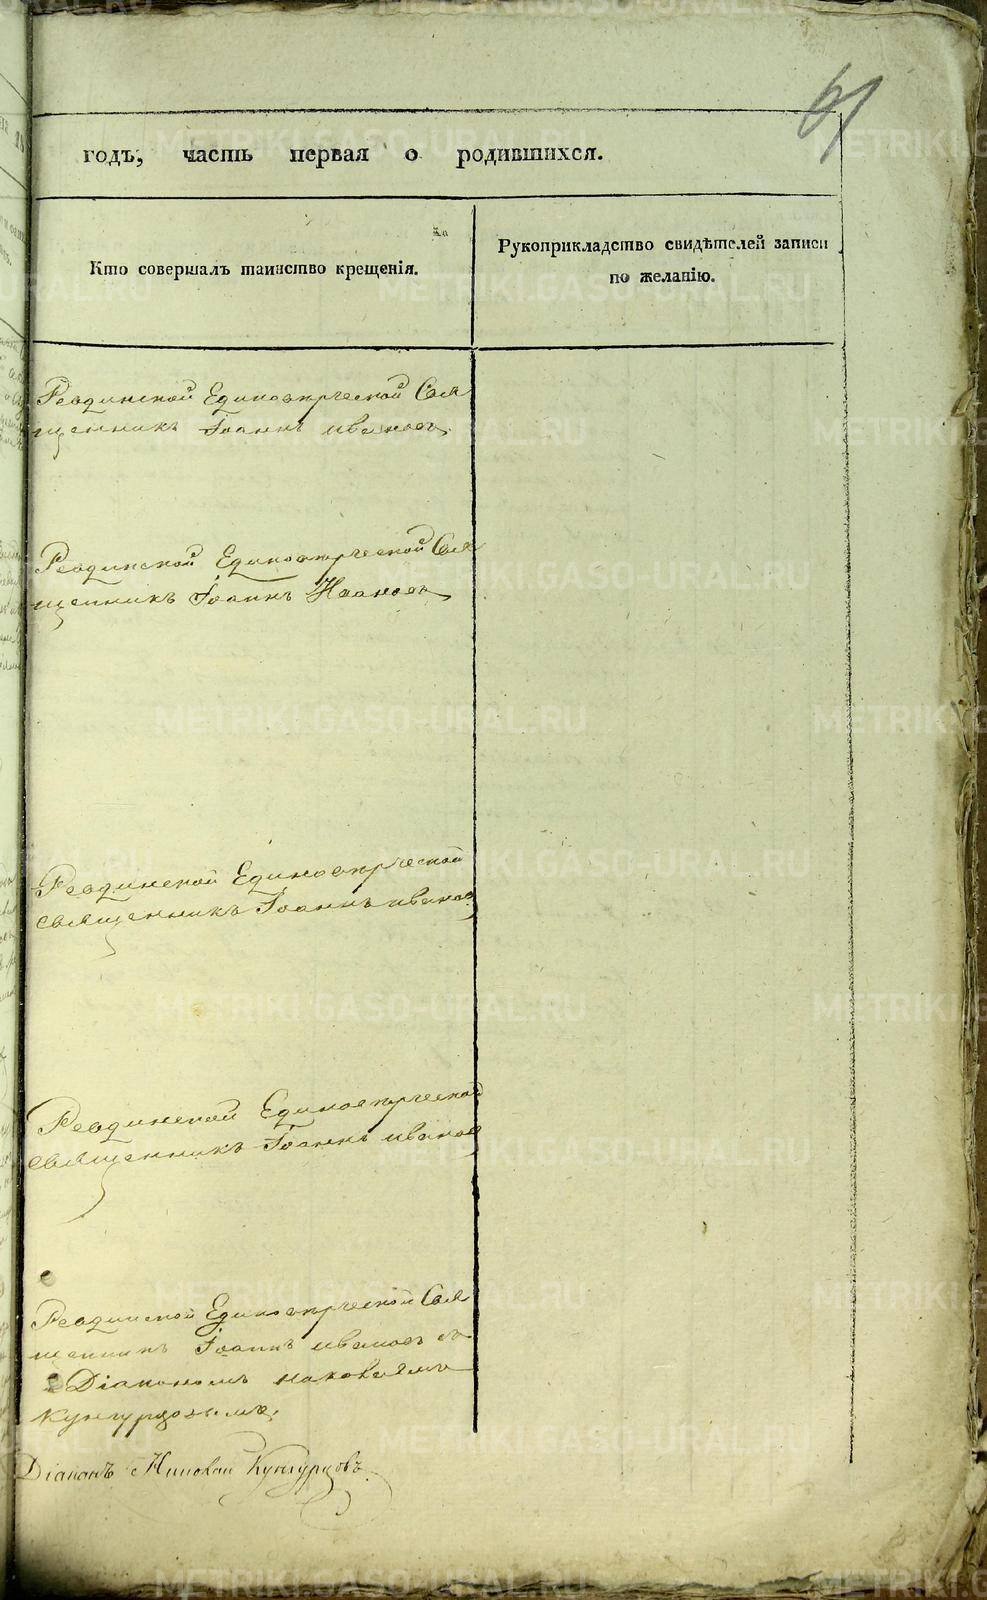 61
годъ, часть первая о родившихся.
Кто совершалъ таинство крещенія.
Рукоприкладство свидѣтелей записи
по желанію.
Ревдинской Единовѣрческой Свя
щенникъ Іоаннъ Ивановъ
Ревдинской Единовѣрческой Свя
щенникъ Іоаннъ Ивановъ
Ревдинской Единовѣрческой
священникъ Іоаннъ Ивановъ
Ревдинской Единовѣрческой
священникъ Іоаннъ Ивановъ
Ревдинской Единовѣрческой Свя
щенникъ Іоаннъ Ивановъ съ
Діакономъ
Кунгурцовымъ
Діаконъ Николай Кунгурцовъ
METRIKI.GASO-URAL.RU